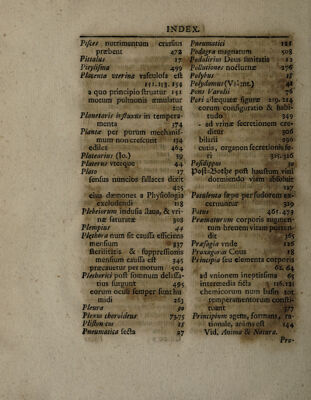 INDEX.
Pisces nutrimentum crassius
præbent 472
Pittalus 17
Pityilisma 499
Placenta uterina vasculosa est
151. 153. 154
a quo principio struatur 151
motum pulmonis æmulatur
201
Planetaris influxus in tempera-
menta 174
Plantæ per purum mechanis-
mum non crescunt 134
edilet 464
Platearius (Io.) 39
Platerus viteque 44
Plato
sensus nuncios fallaces dicit
425
eius dæmones a Physiologia
excludendi 118
Plebeiorum indusia flava, & vri-
næ saturatæ 308
Plempius 44
Plethora num sit causa efficiens
mensium 337
sterilitatis & suppressionis
mensium causa est 345
præcauetur per motum 404
Plethorici post somnum delassa-
tius surgunt 495
eorum oculi semper sunt hu-
midi 263
Pleura 50
Plexus choroideus 73. 75
Plistonicus 15
Pneumatica secta 27
Pneumatici 121
Podagra magnatum 508
Podalirius Deus sanitatis 12
Pollutiones nocturnæ 276
Polybus 15
Polydamus (Vi: nt.) 41
Pons Varolii 76
Pori cæteræque figuræ 219. 214
eorum configuratio & habi-
tudo 349
ad vrinæ secretionem cre-
ditur 306
biliarii 290
cutis, organon secretionis se-
ri 315. 316
Posidippus 30
Post-Bothe post haustum vini
dormiendo viam absoluit
127
Patulenta sæpe per sudorem ex-
cernuntur 319
Potus 461. 473
Præmaturum corporis augmen-
tum breuem vitam porten-
dit 365
Præsagia vnde 126
Praxagoras Cous 18
Principia seu elementa corporis
62. 64
ad vnionem ineptissima 65
intermedia ficta 116. 121
chemicorum num bini 101
temperamentorum consti-
tuunt 377
Principium agens, formans, ra-
tionale, anima est 144
Vid. Anima & Natura.
Pro-